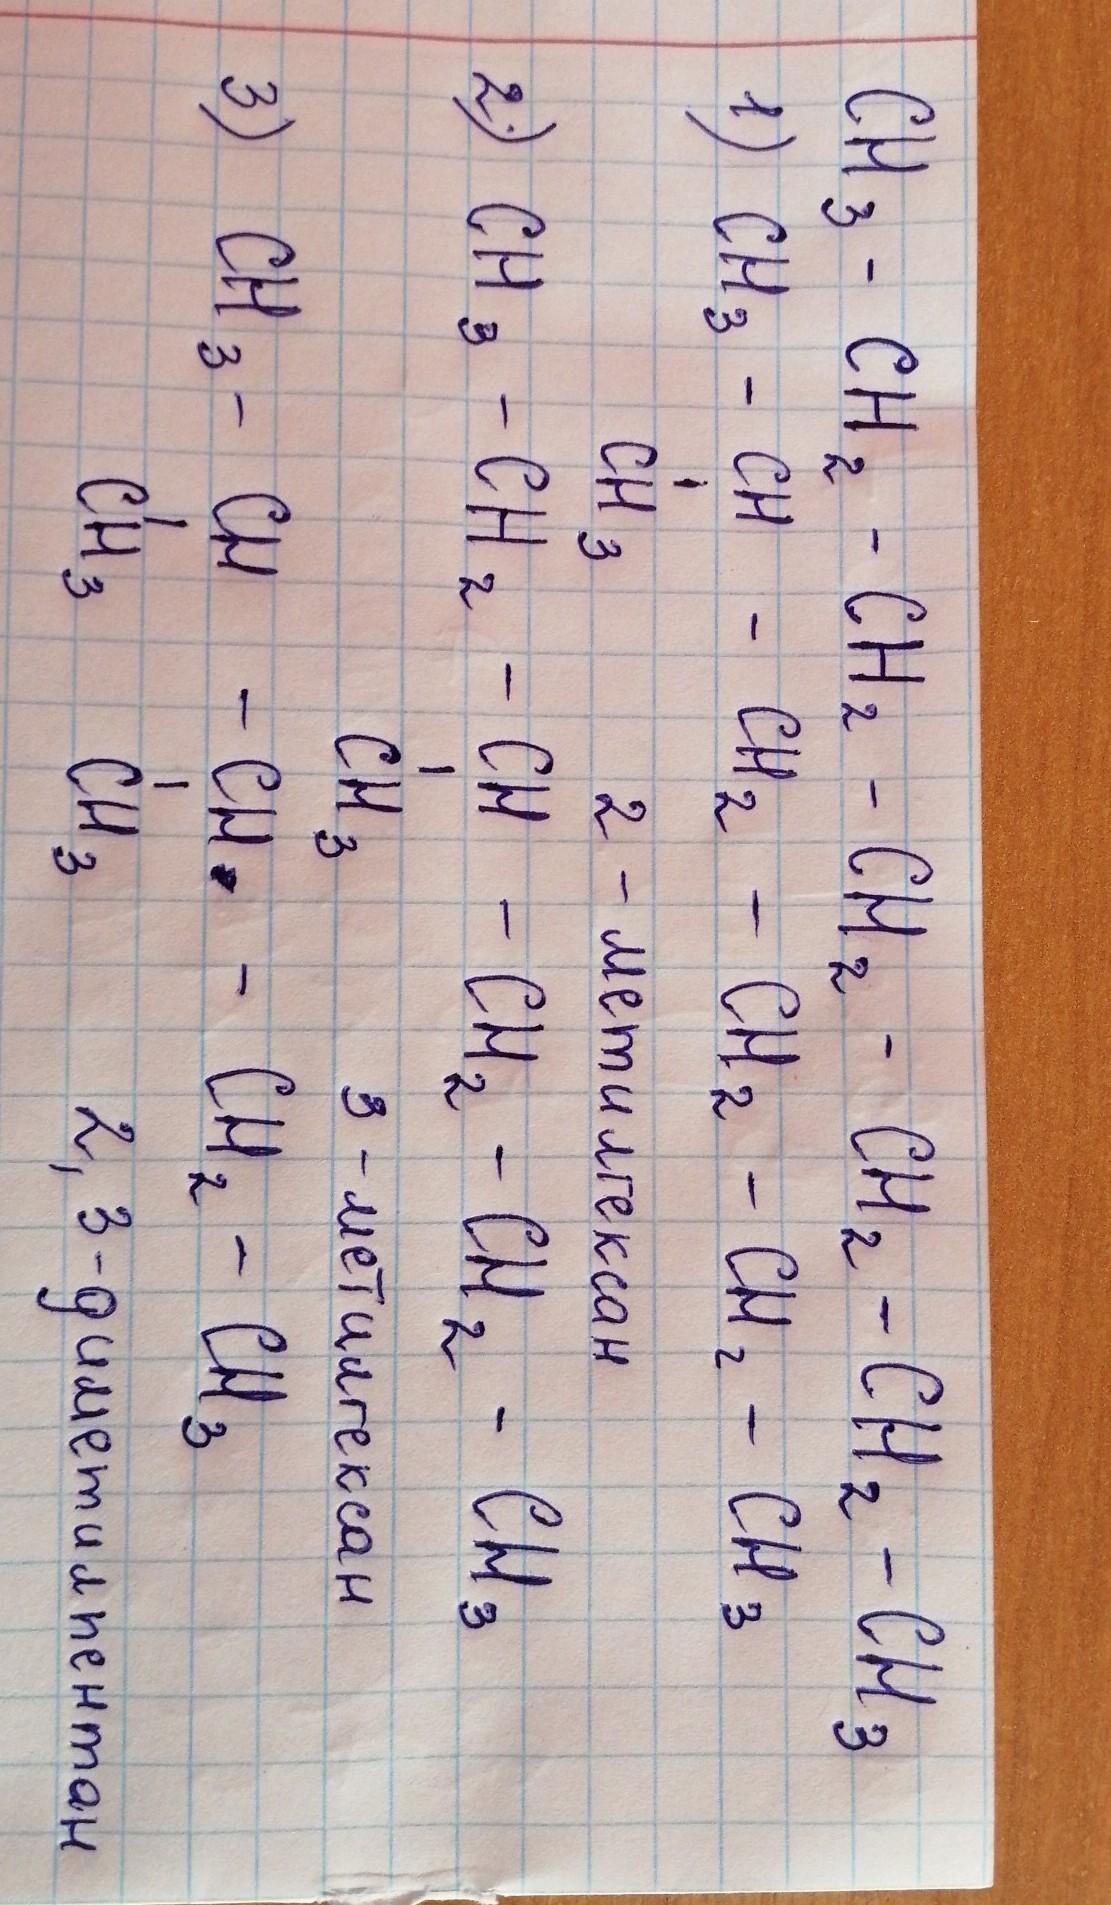 CH3 - CH2 - CH2 - CH2 - CH2 - CH2 - CH3
1) CH3 - CH - CH2 - CH2 - CH2 - CH3
CH3 2-метилгексан
2) CH3 - CH2 - CH - CH2 - CH2 - CH3
CH3 3-метилгексан
3) CH3 - CH - CH - CH2 - CH3
CH3 CH3 2,3-диметилпентан